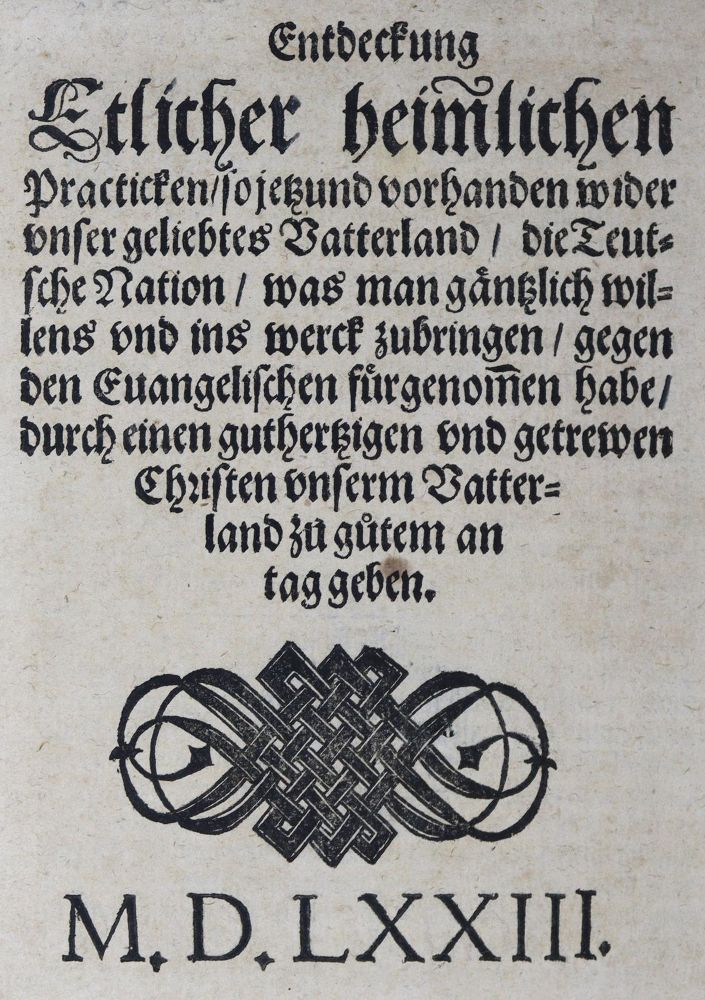 Entdeckung
Etlicher heim̃lichen
Practicken/ so jetzund vorhanden wider
vnser geliebtes Vatterland / die Teut⸗
sche Nation / was man gäntzlich wil⸗
lens vnd ins werck zubringen / gegen
den Euangelischen fürgenom̃en habe/
durch einen guthertzigen vnd getrewen
Christen vnserm Vatter⸗
land zů gůtem an
tag geben.
M. D. LXXIII.